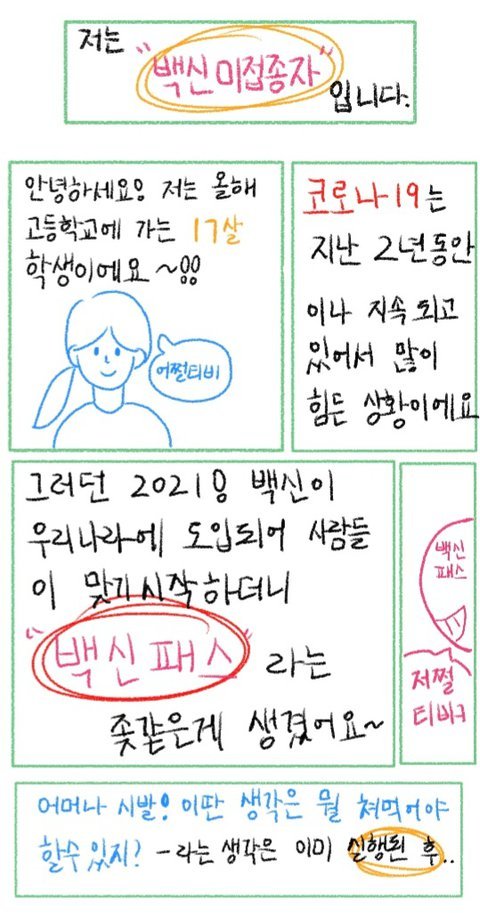 저는
"백신 미접종자"
입니다.
안녕하세요! 저는 올해
고등학교에 가는 17살
학생이에요~!!
어쩔티비
코로나19는
지난 2년동안
이나 지속되고
있어서 많이
힘든 상황이에요
그러던 2021!! 백신이
우리나라에 도입되어 사람들
이 맞기시작하더니
"백신패스" 라는
좆같은게 생겼어요~
백신
패스
저쩔
티비ㅋ
어머나 시발! 이딴 생각은 뭘 쳐먹어야
할수있지? -라는 생각은 이미 실행된 후..